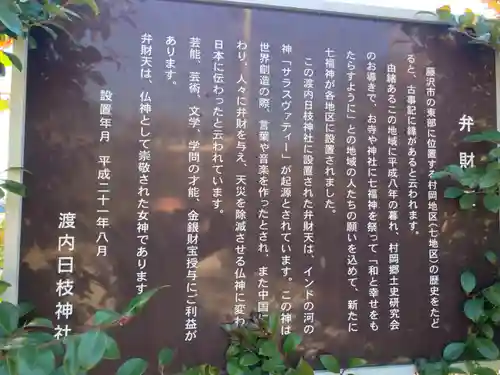 弁財
藤沢市の東部に位置する村岡地区(七地区)の歴史をたど
ると、古事記に縁があると云われています。
由緒あるこの地域に平成八年の暮れ、村岡郷土史研究会
のお導きで、お寺や神社に七福神を祭って「和と幸せをも
たらすように」との地域の人たちの願いを込めて、新たに
七福神が各地区に設置されました。
この渡内日枝神社に設置された弁財天は、インドの河の
神「サラスヴァティー」が起源とされています。この神は
世界創造の際、言葉や音楽を作ったとされ、また中国に
わり、人々に弁財を与え、天災を除滅させる仏神に変わ
日本に伝わったと云われています。
芸能、芸術、文学、学問の才能、金銀財宝授与にご利益が
あります。
弁財天は、仏神として崇敬された女神であります
設置年月 平成二十一年八月
渡内日枝神社